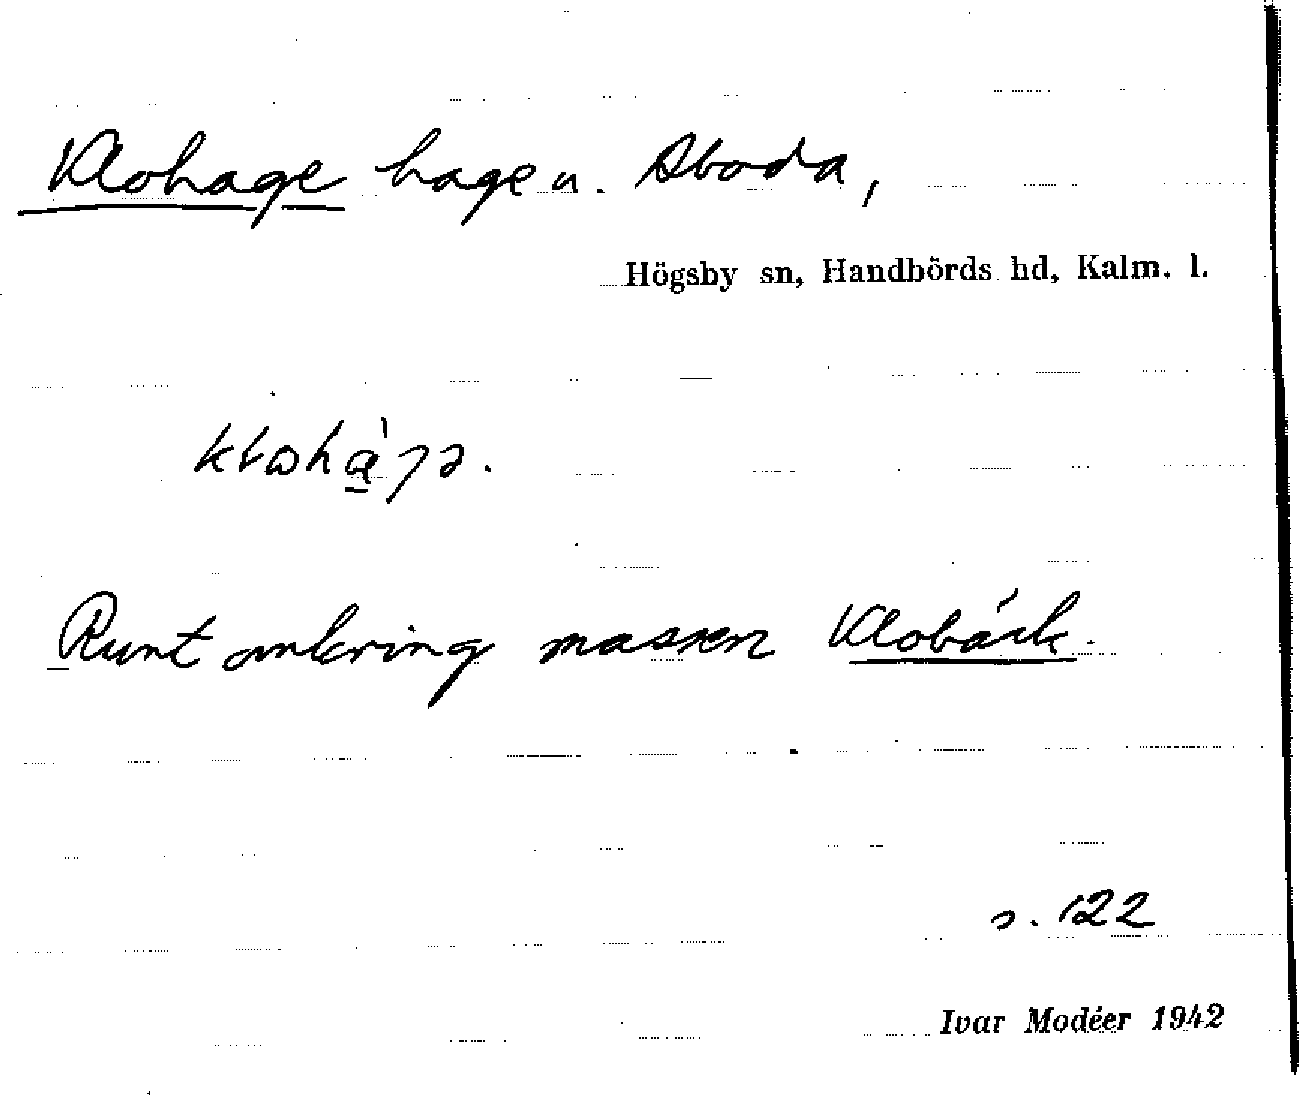 Klohage hage u. Aboda,
Högsby sn, Handbörds hd, Kalm. l.
Runt omkring mossen Klobäck.
s. 122
Ivar Modéer 1942